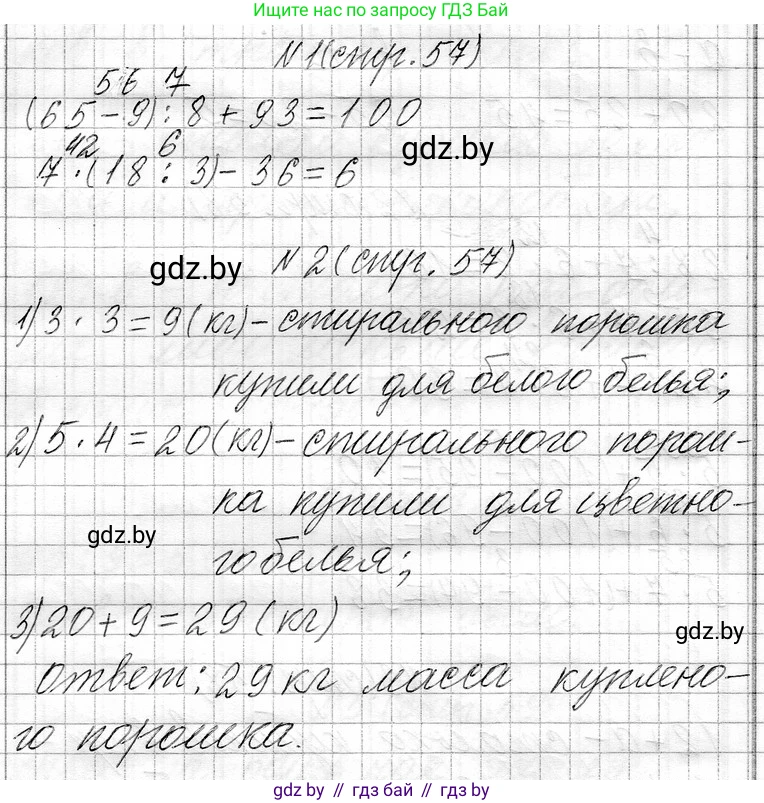 Ищите нас по запросу ГДЗ Бай
№1(стр. 57)
56 7
(65-9):8+93=100
42 6
7·(18:3)-36=6
gdz.by
№2(стр. 57)
gdz.by
1)3·3=9(кг)-стирального порошка
купили для белого белья;
2)5·4=20(кг)-стирального порош-
ка купили для цветно-
gdz.by
го белья;
3)20+9=29(кг)
gdz.by
Ответ: 29 кг масса куплено-
го порошка.
gdz.by // гдз бай // gdz.by // гдз бай // gdz.by